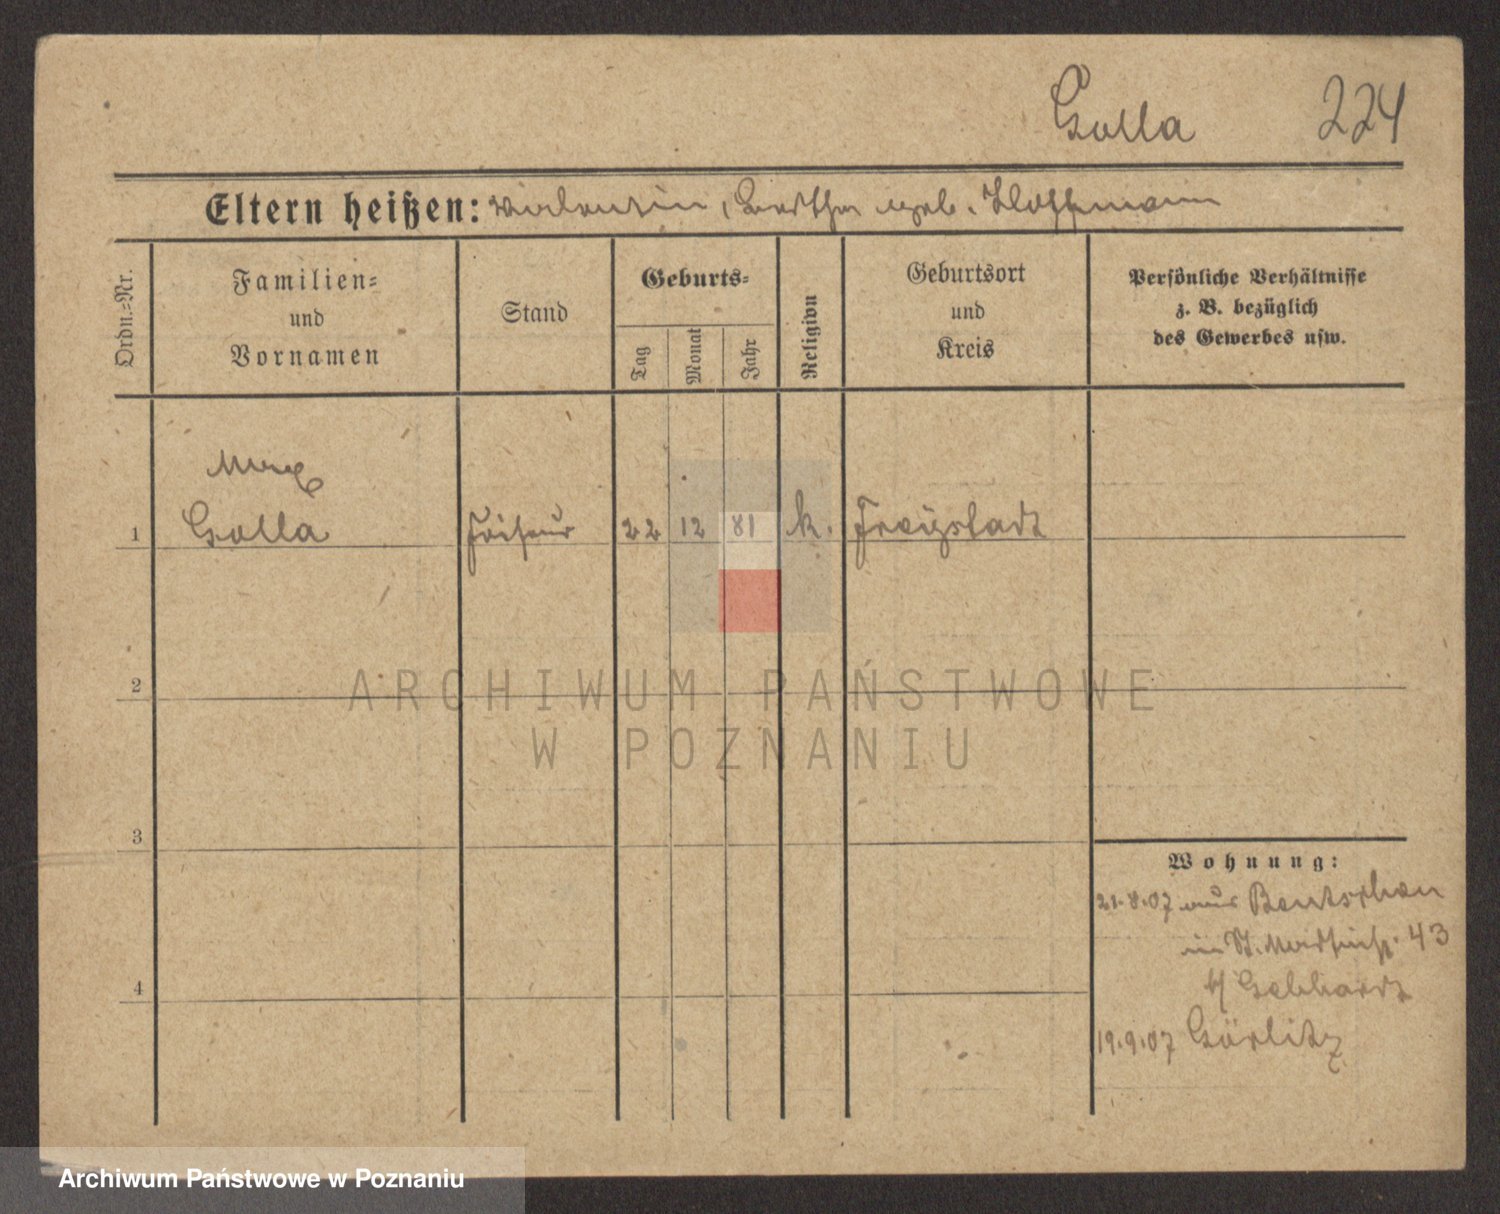 Golla 224
Eltern heißen: Valentin, Bertha geb. Hoffmann
Ordn.=Nr.
Familien=
und
Vornamen
Stand
Geburts=
Tag
Monat
Jahr
Religion
Geburtsort
und
Kreis
Persönliche Verhältnisse
z. B. bezüglich
des Gewerbes usw.
Max
1 Golla Friseur 22 12 81 k. Freystadt
2
ARCHIWUM PAŃSTWOWE
W POZNANIU
3
Wohnung:
21.8.07 aus Bentschen
in St. 43
4
b/ Gebhardt
19.9.07 Görlitz
Archiwum Państwowe w Poznaniu